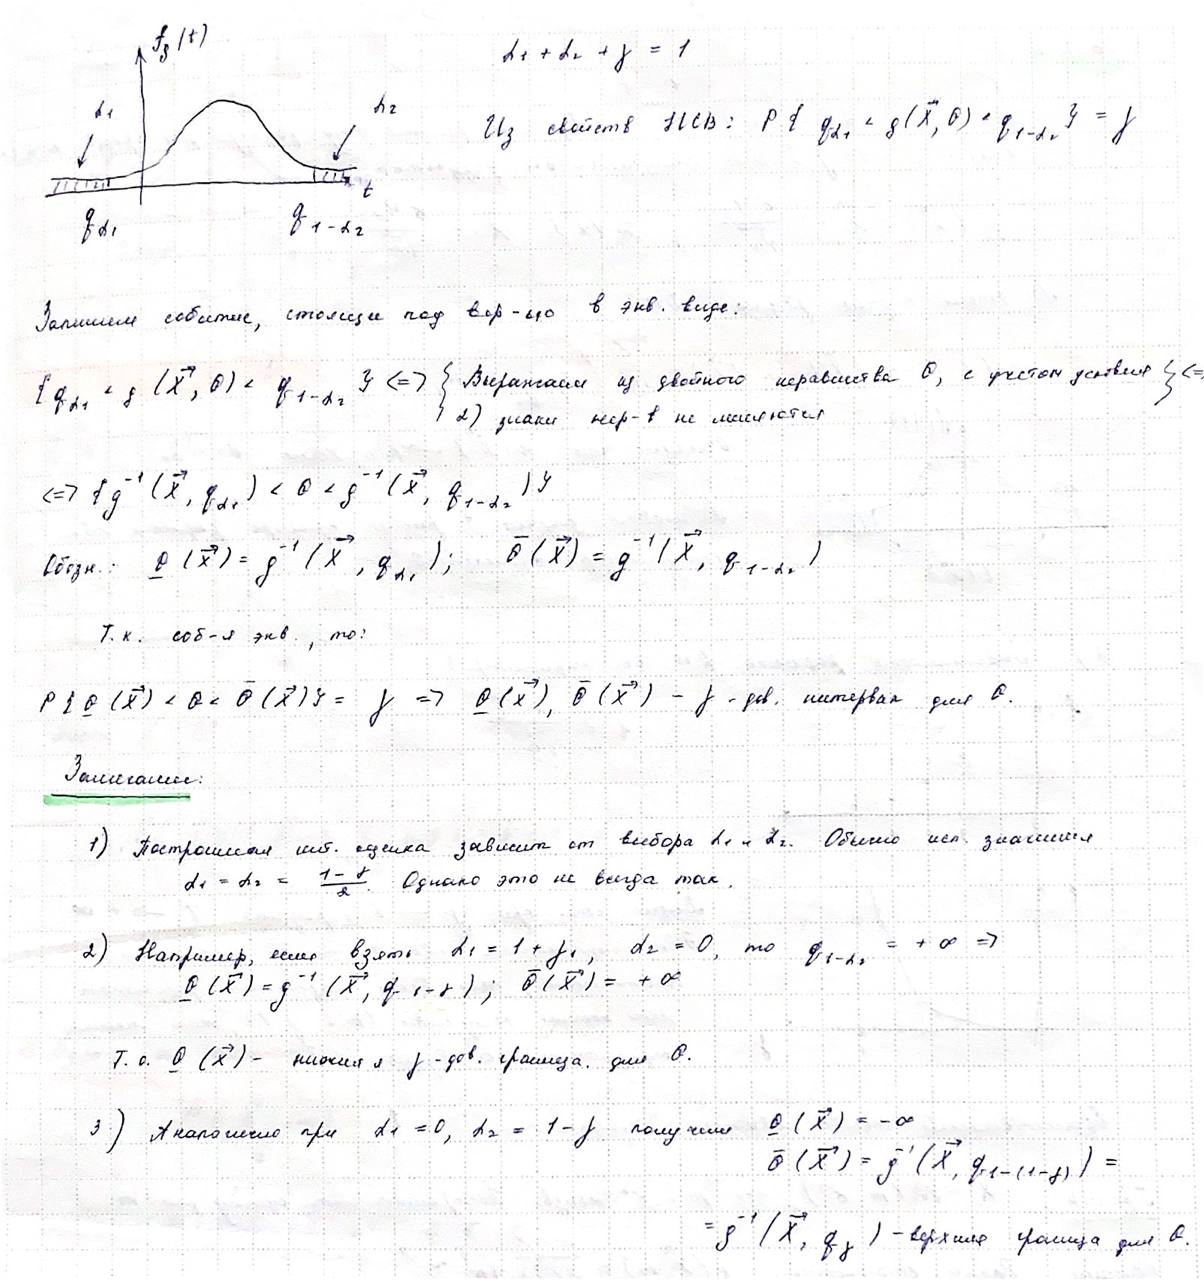 f_g(t)
α₁ + α₂ + γ = 1
α₁
α₂
Из свойств НСВ: P{ q_{α₁} < g(X⃗, θ) < q_{1-α₂} } = γ
t
q_{α₁}
q_{1-α₂}
Запишем событие, стоящее под вер-ью в экв. виде:
{ q_{α₁} < g(X⃗, θ) < q_{1-α₂} } <=> { Выражаем из двойного неравенства θ, с учетом условия
2) знаки нер-в не меняются } <=>
<=> { g⁻¹(X⃗, q_{α₁}) < θ < g⁻¹(X⃗, q_{1-α₂}) }
Обозн.: θ̲(X⃗) = g⁻¹(X⃗, q_{α₁}); θ̄(X⃗) = g⁻¹(X⃗, q_{1-α₂})
Т.к. соб-я экв., то:
P{ θ̲(X⃗) < θ < θ̄(X⃗) } = γ => θ̲(X⃗), θ̄(X⃗) - γ-дов. интервал для θ.
Замечание:
1) Построенная инт. оценка зависит от выбора α₁ и α₂. Обычно исп. значения
α₁ = α₂ = (1-γ)/2. Однако это не всегда так.
2) Например, если взять α₁ = 1 + γ₁, α₂ = 0, то q_{1-α₂} = +∞ =>
θ̲(X⃗) = g⁻¹(X⃗, q_{1-γ}); θ̄(X⃗) = +∞
Т.о. θ̲(X⃗) - нижняя γ-дов. граница. для θ.
3) Аналогично при α₁ = 0, α₂ = 1-γ получим θ̲(X⃗) = -∞
θ̄(X⃗) = g⁻¹(X⃗, q_{1-(1-γ)}) =
= g⁻¹(X⃗, q_γ) - верхняя граница для θ.